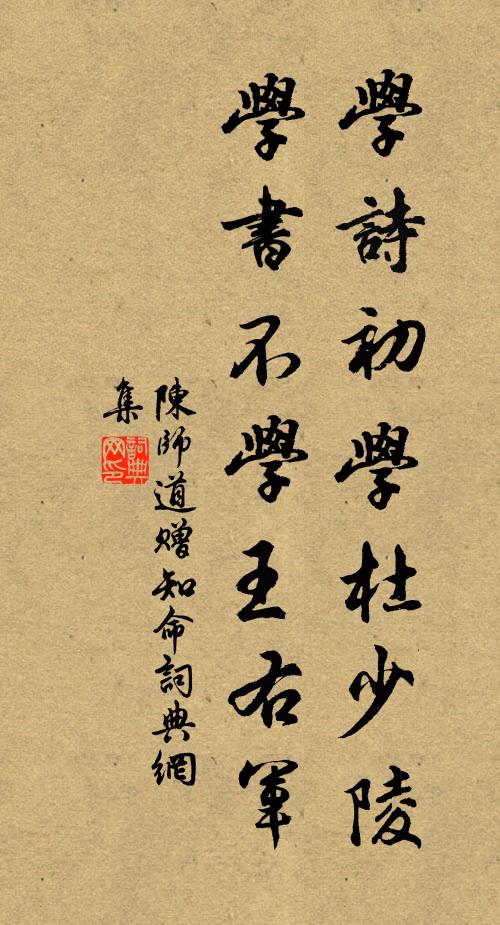 學詩初學杜少陵
學書不學王右軍
陳師道贈知命詞典網
集
詞典
网印